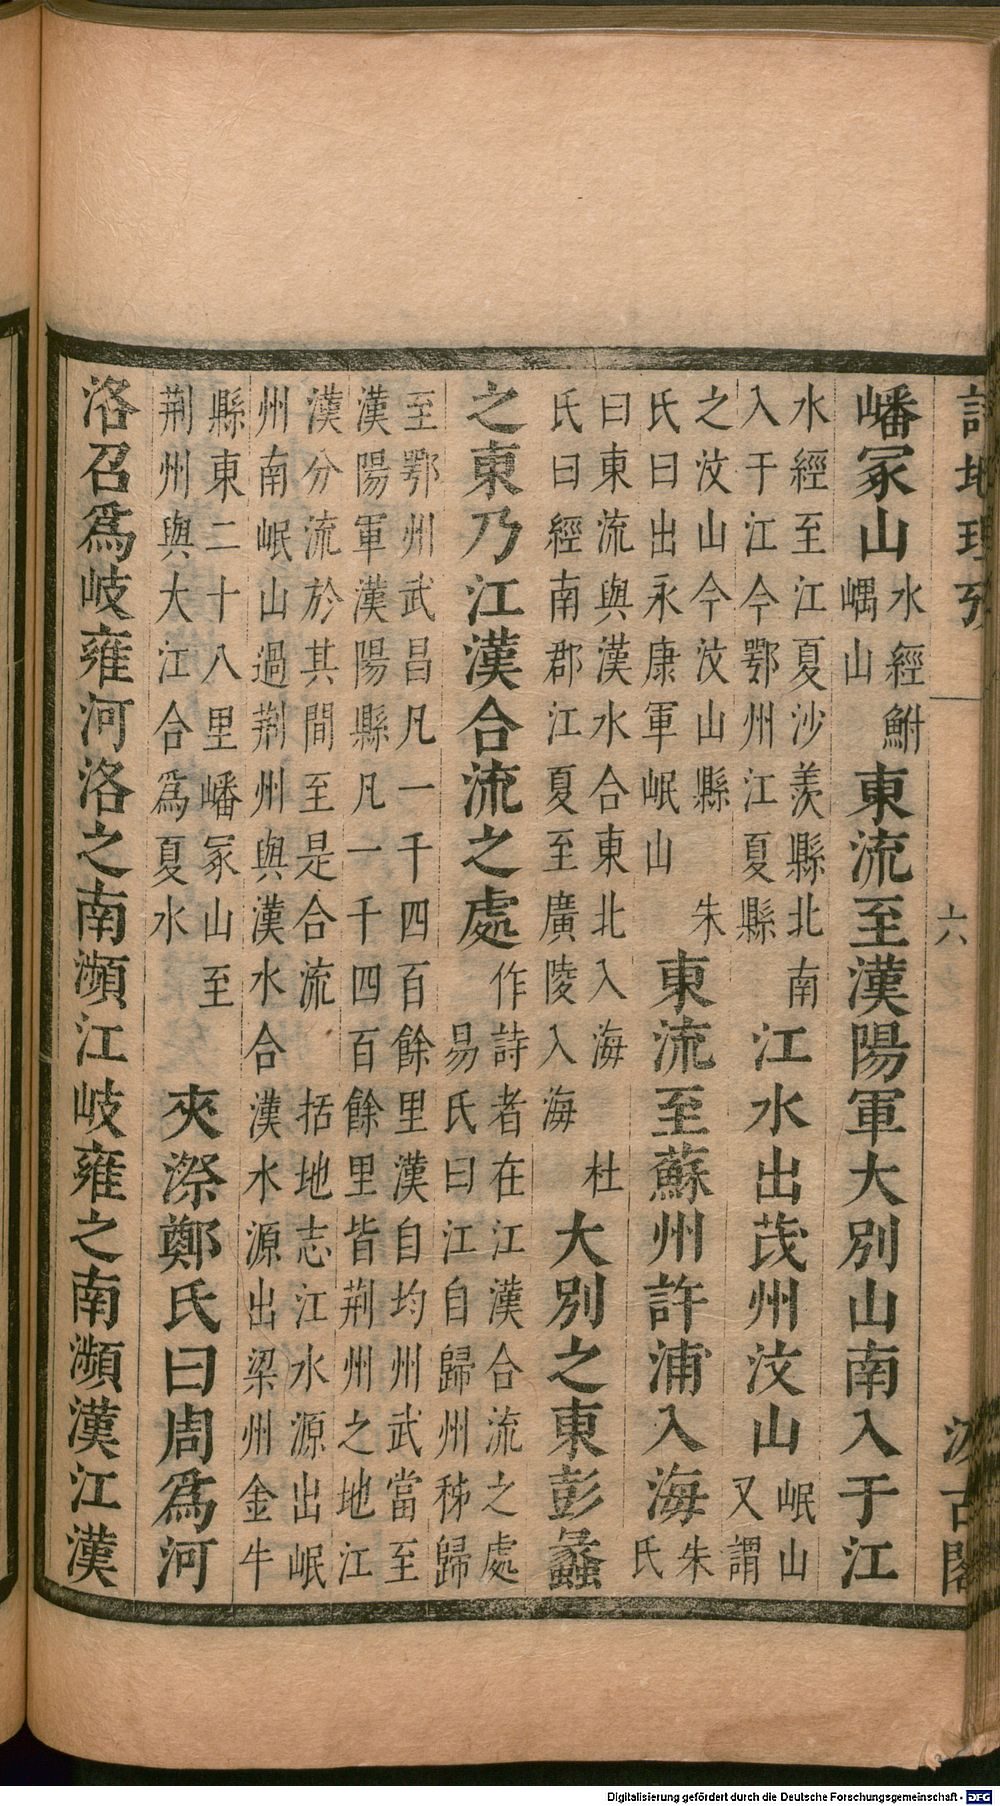 詩地理攷　六　汲古閣
嶓冢山水經鮒嵎山東流至漢陽軍大別山南入于江
水經至江夏沙羨縣北南入于江今鄂州江夏縣江水出茂州汶山岷山又謂
之汶山今汶山縣　朱氏曰出永康軍岷山東流至蘇州許浦入海朱氏
曰東流與漢水合東北入海　杜氏曰經南郡江夏至廣陵入海大別之東彭蠡
之東乃江漢合流之處作詩者在江漢合流之處易氏曰江自歸州秭歸
至鄂州武昌凡一千四百餘里漢自均州武當至
漢陽軍漢陽縣凡一千四百餘里皆荆州之地江
漢分流於其間至是合流　括地志江水源出岷
州南岷山過荆州與漢水合漢水源出梁州金牛
縣東二十八里嶓冢山至荆州與大江合爲夏水夾漈鄭氏曰周爲河
洛召爲岐雍河洛之南瀕江岐雍之南瀕漢江漢
Digitalisierung gefördert durch die Deutsche Forschungsgemeinschaft - DFG